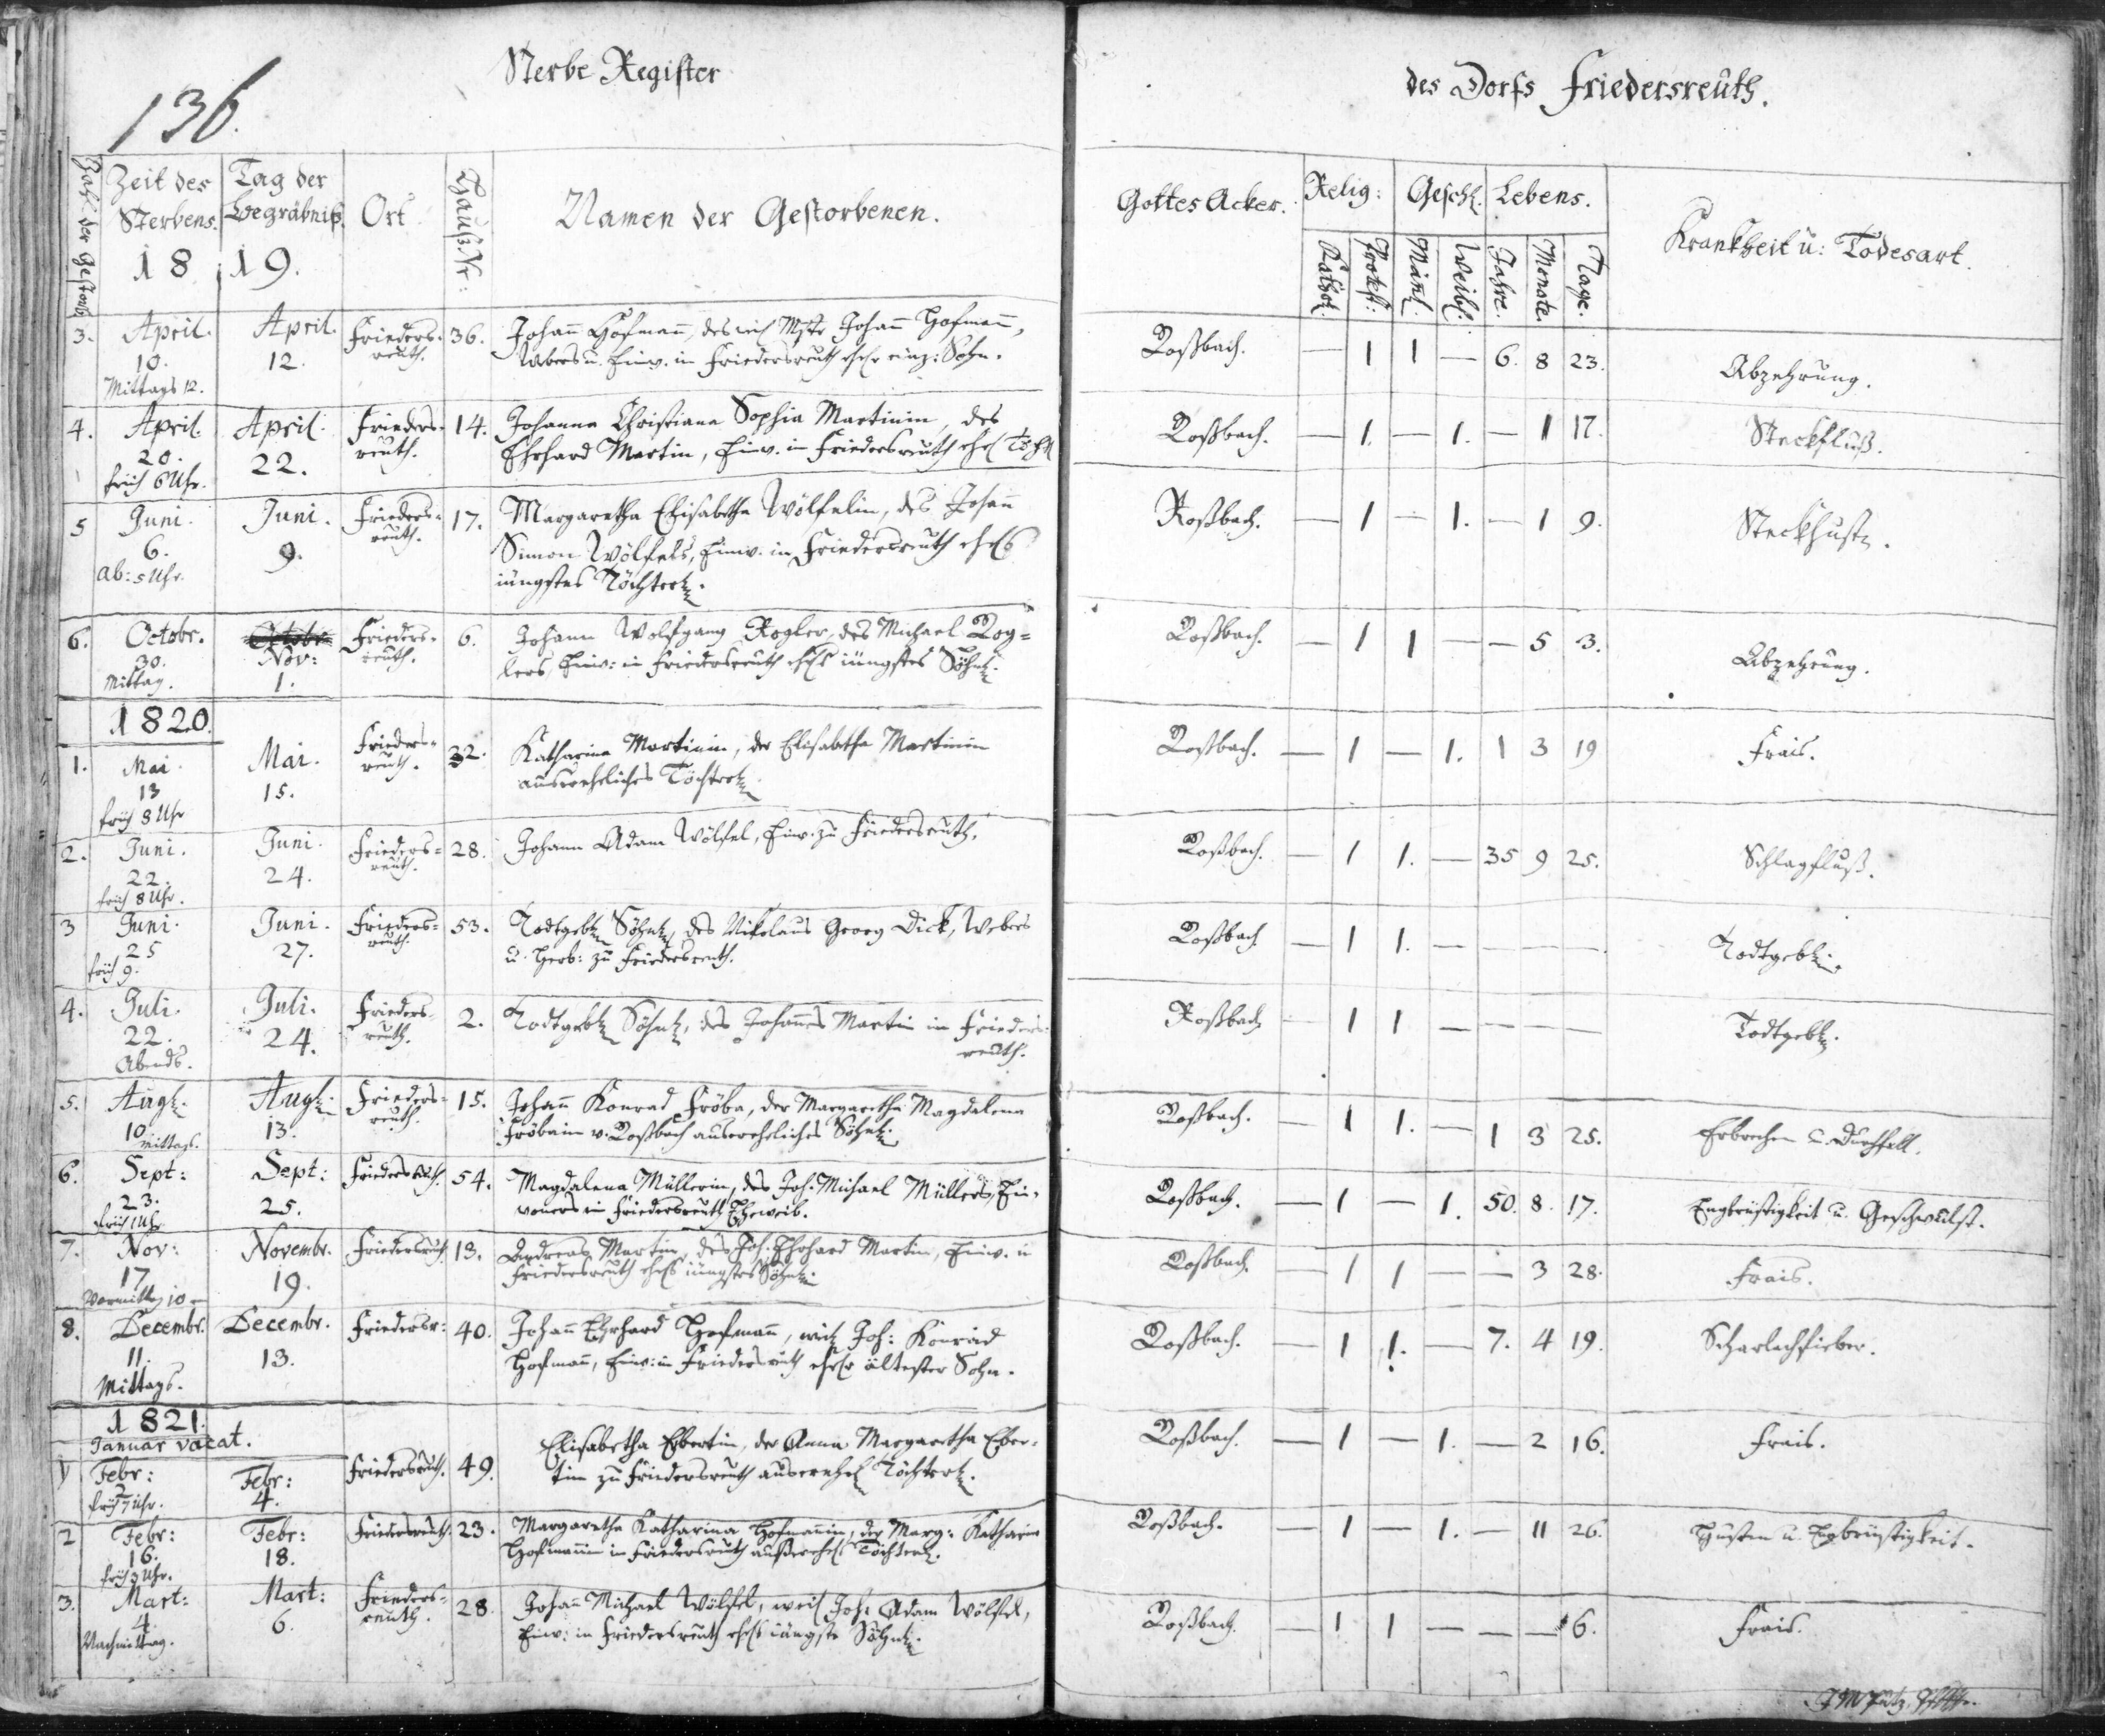 136.
Sterbe Register
des Dorfs Friedersreüth.
Zahl der Gestorb
Zeit des Sterbens.
Tag der Begräbniß.
Ort
Hauß Nr:
Namen der Gestorbenen.
Gottes Acker.
Relig:
Geschl.
Lebens.
Krankheit ü: Todesart.
Kathol.
Protest:
Mänl.
Weibl:
Jahre.
Monate.
Tage.
18 19.
3. April. April. Frieders- 36. Johann Hofmann, des Mstr Johann Hofmann, Roßbach. — 1 1 — 6. 8 23. Abzehrung.
10. 12. reuth. Webers u. Einw. in Friedersreuth einz: Sohn.
Mittags 12.
4. April. April. Frieders- 14. Johanna Christiana Sophia Martinin, des Roßbach. — 1. — 1. — 1 17. Steckfluß.
20. 22. reuth. Ehrhard Martin, Einw. in Friedersreuth ehel
früh 6 Uhr.
5 Juni. Juni. Frieders- 17. Margaretha Elisabetha Wölfelin, des Johann Roßbach. — 1 — 1. — 1 9. Steckhusten.
6. 9. reuth. Simon Wölfels, Einw. in Friedersreuth
ab: 5 Uhr. jüngstes Töchterl.
6. Octobr. Octobr. Frieders- 6. Johann Wolfgang Rogler, des Michael Rog= Roßbach. — 1 1 — — 5 3. Abzehrung.
30. Nov: reuth. lers, Einw: in Friedersreuth jüngstes Söhnl.
Mittag. 1.
1820.
1. Mai. Mai. Frieders- 32. Katharina Martinin, der Elisabetha Martinin Roßbach. — 1 — 1. 1 3 19 Frais.
13 15. reuth. ausereheliches Töchterl
früh 8 Uhr
2. Juni. Juni. Frieders= 28. Johann Adam Wölfel, Einw. zu Friedersreuth. Roßbach. — 1 1. — 35 9 25. Schlagfluß.
22. 24. reuth.
früh 8 Uhr.
3 Juni. Juni. Frieders= 53. Todtgeb. Söhnl, des Nikolaus Georg Dick, Webers Roßbach — 1 1. — — — — Todtgeb.
25 27. reuth. u. Herb: zu Friedersreuth.
früh 9.
4. Juli. Juli. Frieders- 2. Todtgeb Söhnl, des Johannes Martin in Frieders- Roßbach — 1 1 — — — — Todtgeb.
22. 24. reuth. reuth.
Abends.
5. Aug. Aug. Frieders- 15. Johann Konrad Fröba, der Margaretha Magdalena Roßbach. — 1 1. — 1 3 25. Erbrechen u. Durchfall.
10 13. reuth. Fröbain v. Roßbach ausereheliches Söhnl.
Mittags.
6. Sept: Sept: Friedersreuth. 54. Magdalena Müllerin, des Joh. Michael Müllers, Ein- Roßbach. — 1 — 1. 50. 8. 17. Engbrüstigkeit u. Geschwulst.
23. 25. woners in Friedersreuth Eheweib.
früh 1 Uhr
7. Nov: Novembr. Friedersreuth. 13. Andreas Martin, des Joh. Ehrhard Martin, Einw. in Roßbach. — 1 1 — — 3 28. Frais.
17 19. Friedersreuth jüngstes Söhnl.
Vormittag 10
8. Decembr. Decembr. Friedersr: 40. Johann Ehrhard Hofmann, Joh: Konrad Roßbach. — 1 1. — 7. 4 19. Scharlachfieber.
11. 13. Hofmann, Einw: in Friedersreuth ältester Sohn.
Mittags.
1821.
Januar vacat.
1 Febr: Febr: Friedersreuth. 49. Elisabetha Ebertin, der Anna Margaretha Eber- Roßbach. — 1 — 1. — 2 16. Frais.
2 4. tin zu Friedersreuth auserehel Töchterl.
früh 7 Uhr.
2 Febr: Febr: Friedersreuth. 23. Margaretha Katharina Hofmannin, der Marg: Katharina Roßbach. — 1 — 1. — 11 26. Husten u. Engbrüstigkeit.
16. 18. Hofmannin in Friedersreuth Töchterl.
früh 3 Uhr.
3. Mart: Mart: Frieders= 28. Johann Michael Wölfel, weil Joh: Adam Wölfel, Roßbach. — 1 1 — — — 6. Frais.
4. 6. reuth. Einw: in Friedersreuth jüngste Söhnl.
Nachmittag.